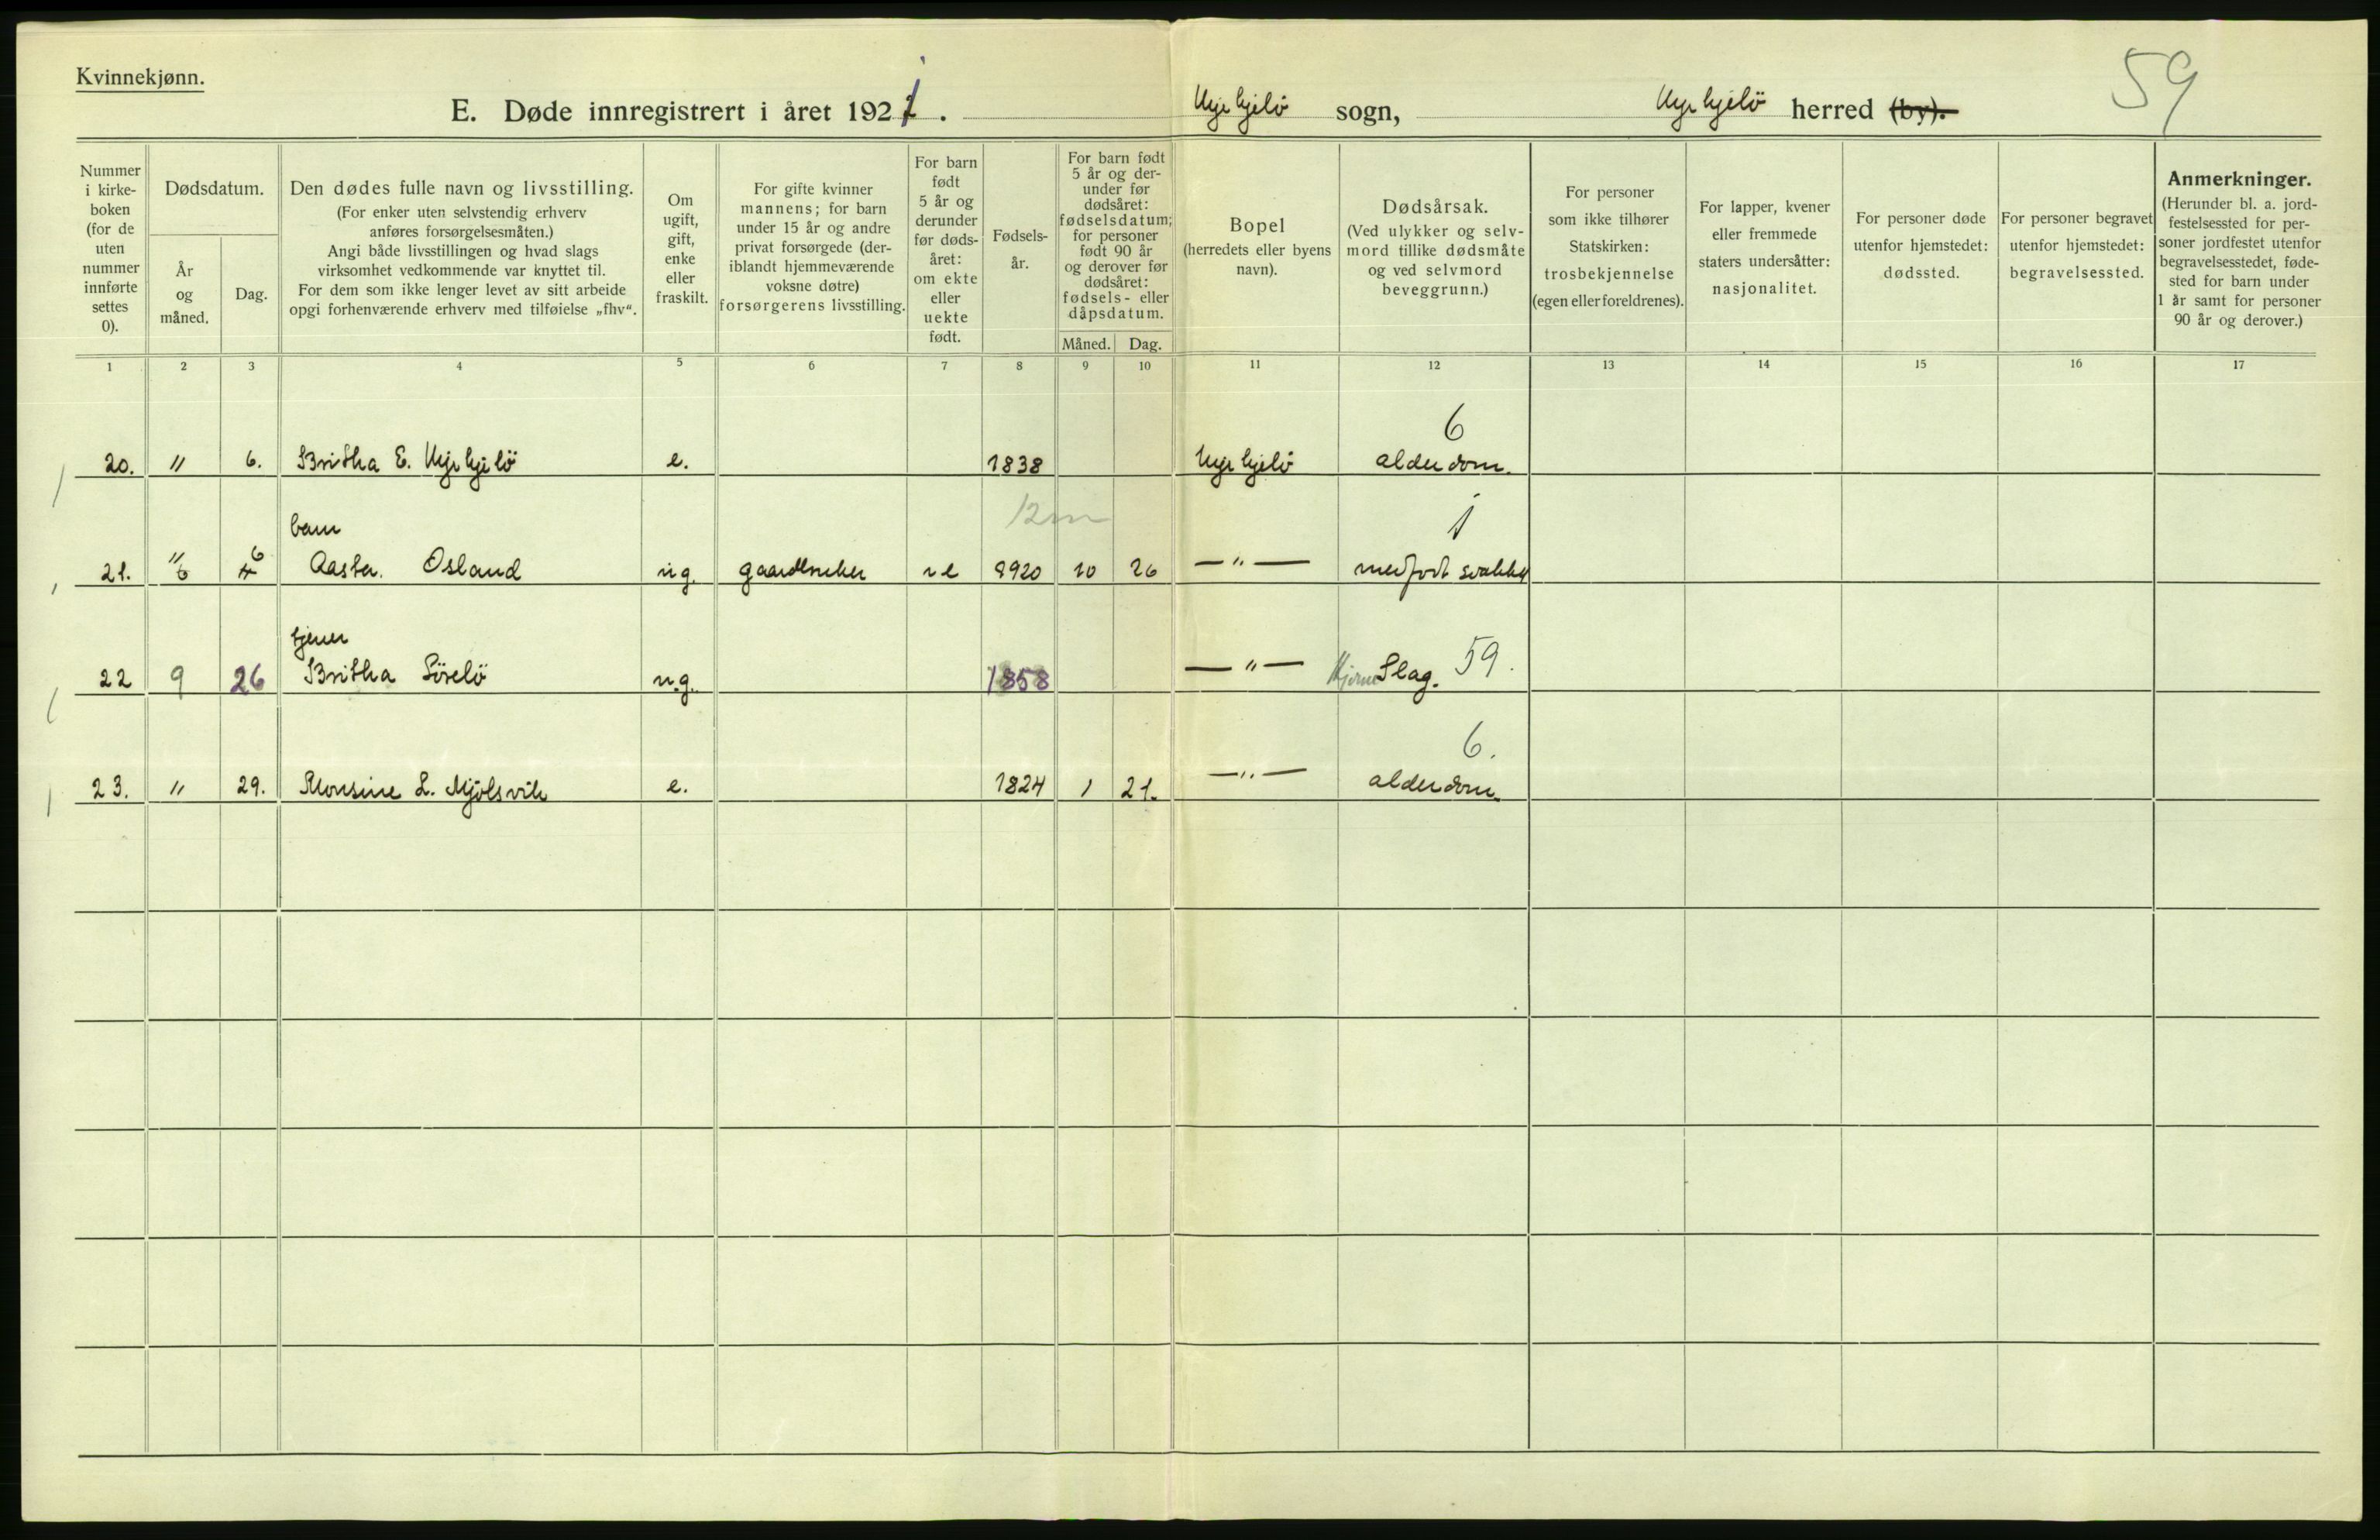 Kvinnekjønn.
59
E. Døde innregistrert i året 1921. Kyrkjebø sogn, Kyrkjebø herred (by).
Nummer i kirkeboken (for de uten nummer innførte settes 0).
Dødsdatum.
År og måned.
Dag.
Den dødes fulle navn og livsstilling.
(For enker uten selvstendig erhverv anføres forsørgelsesmåten.)
Angi både livsstillingen og hvad slags virksomhet vedkommende var knyttet til.
For dem som ikke lenger levet av sitt arbeide opgi forhenværende erhverv med tilføielse „fhv“.
Om ugift, gift, enke eller fraskilt.
For gifte kvinner mannens; for barn under 15 år og andre privat forsørgede (deriblandt hjemmeværende voksne døtre) forsørgerens livsstilling.
For barn født 5 år og derunder før dødsåret: om ekte eller uekte født.
Fødselsår.
For barn født 5 år og derunder før dødsåret: fødselsdatum; for personer født 90 år og derover før dødsåret: fødsels- eller dåpsdatum.
Måned. Dag.
Bopel (herredets eller byens navn).
Dødsårsak. (Ved ulykker og selvmord tillike dødsmåte og ved selvmord beveggrunn.)
For personer som ikke tilhører Statskirken: trosbekjennelse (egen eller foreldrenes).
For lapper, kvener eller fremmede staters undersåtter: nasjonalitet.
For personer døde utenfor hjemstedet: dødssted.
For personer begravet utenfor hjemstedet: begravelsessted.
Anmerkninger. (Herunder bl. a. jordfestelsessted for personer jordfestet utenfor begravelsesstedet, fødested for barn under 1 år samt for personer 90 år og derover.)
1 2 3 4 5 6 7 8 9 10 11 12 13 14 15 16 17
6
20. " 6. Britha E. Kyrkjebø e. 1838 Kyrkjebø alderdom.
12m
1
barn
21. " 6 Aasta Osland ug. gaardbruker e 1920 10 26 —"— medfødt svakhet
tjener
22 9 26 Britha Sörebö ug. 1858 —"— Hjerne Slag. 59.
6.
23. " 29. Monsine L. Mjölsvik e. 1824 1 21. —"— alderdom.